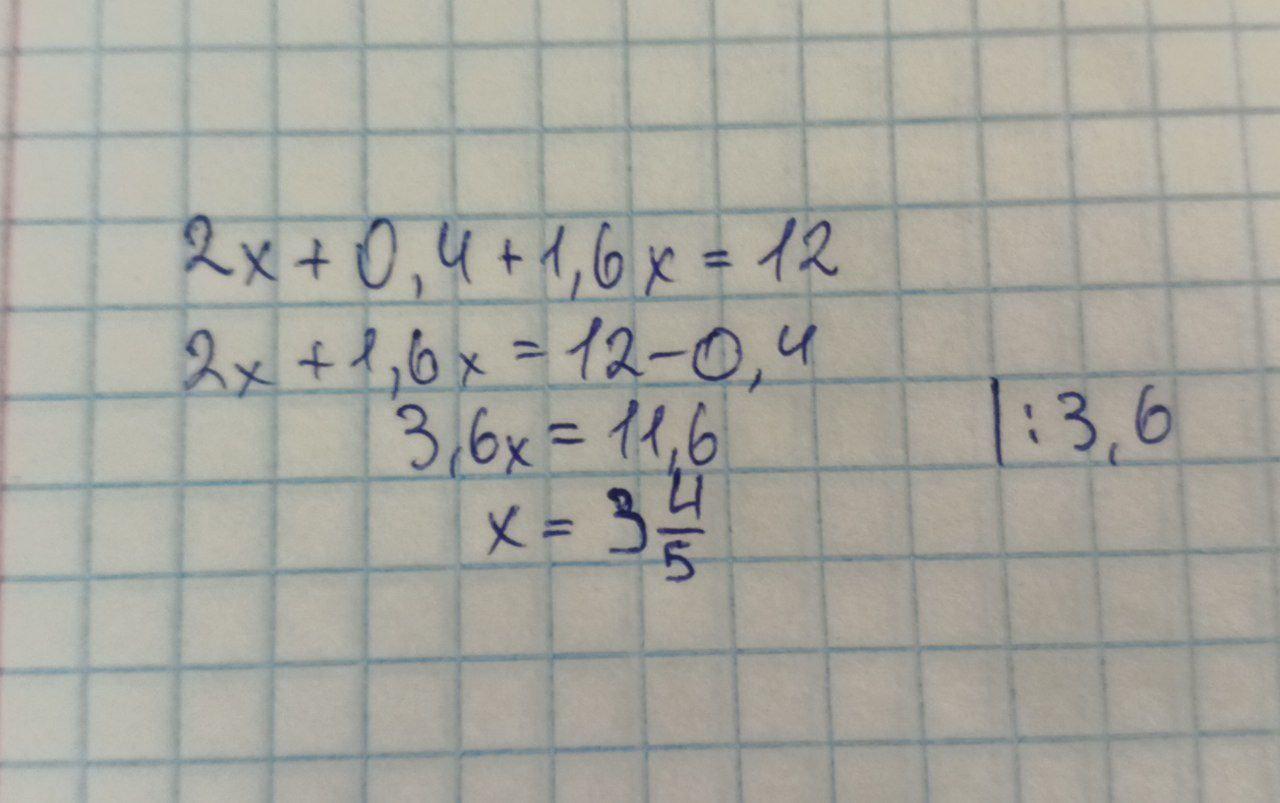 2x + 0,4 + 1,6x = 12
2x + 1,6x = 12 - 0,4
3,6x = 11,6 | : 3,6
x = 3 4/5